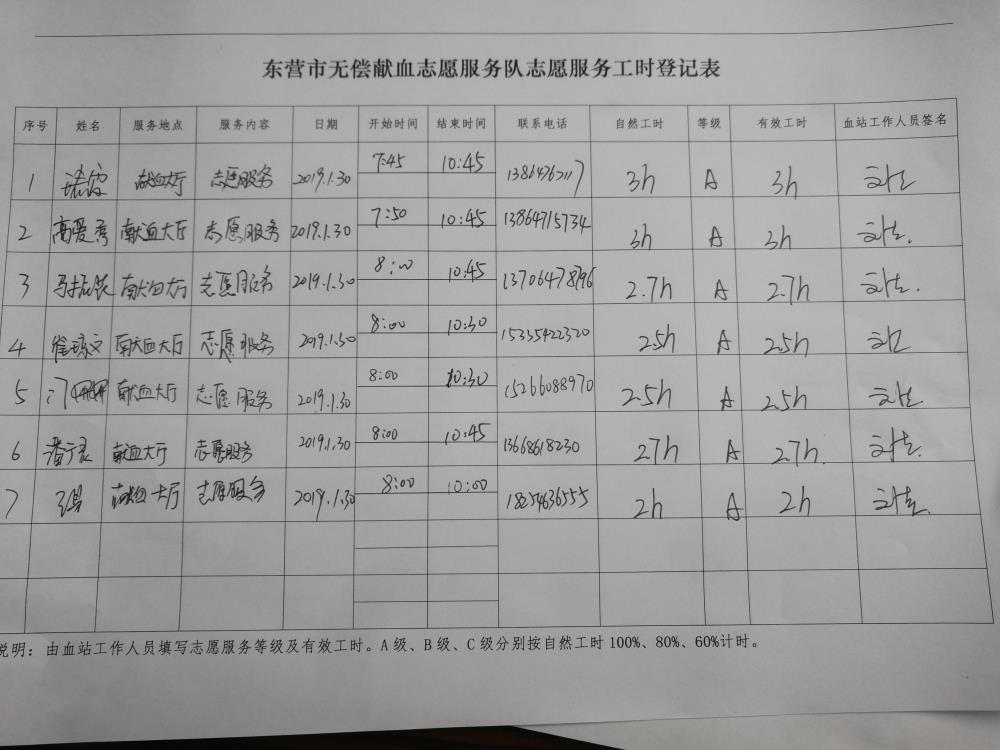 东营市无偿献血志愿服务队志愿服务工时登记表
序号 姓名 服务地点 服务内容 日期 开始时间 结束时间 联系电话 自然工时 等级 有效工时 血站工作人员签名
1 献血大厅 志愿服务 2019.1.30 7:45 10:45 3h A 3h
2 高爱秀 献血大厅 志愿服务 2019.1.30 7:50 10:45 13864715734 3h A 3h
3 献血大厅 志愿服务 2019.1.30 8:00 10:45 13706478796 2.7h A 2.7h
4 献血大厅 志愿服务 2019.1.30 8:00 10:30 15335422320 2.5h A 2.5h
5 献血大厅 志愿服务 2019.1.30 8:00 10:30 15266088970 2.5h A 2.5h
6 献血大厅 志愿服务 2019.1.30 8:00 10:45 13668618230 2.7h A 2.7h
7 献血大厅 志愿服务 2019.1.30 8:00 10:00 18254636555 2h A 2h
说明：由血站工作人员填写志愿服务等级及有效工时。A级、B级、C级分别按自然工时100%、80%、60%计时。